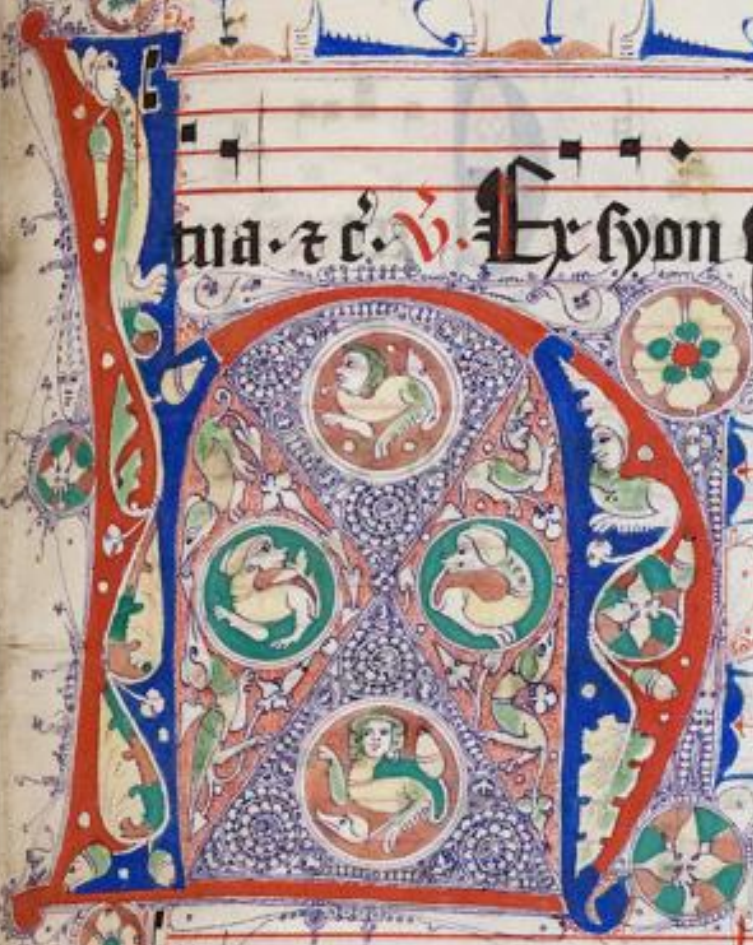 tua · ⁊ c̓ · v̓ · Ex syon
H